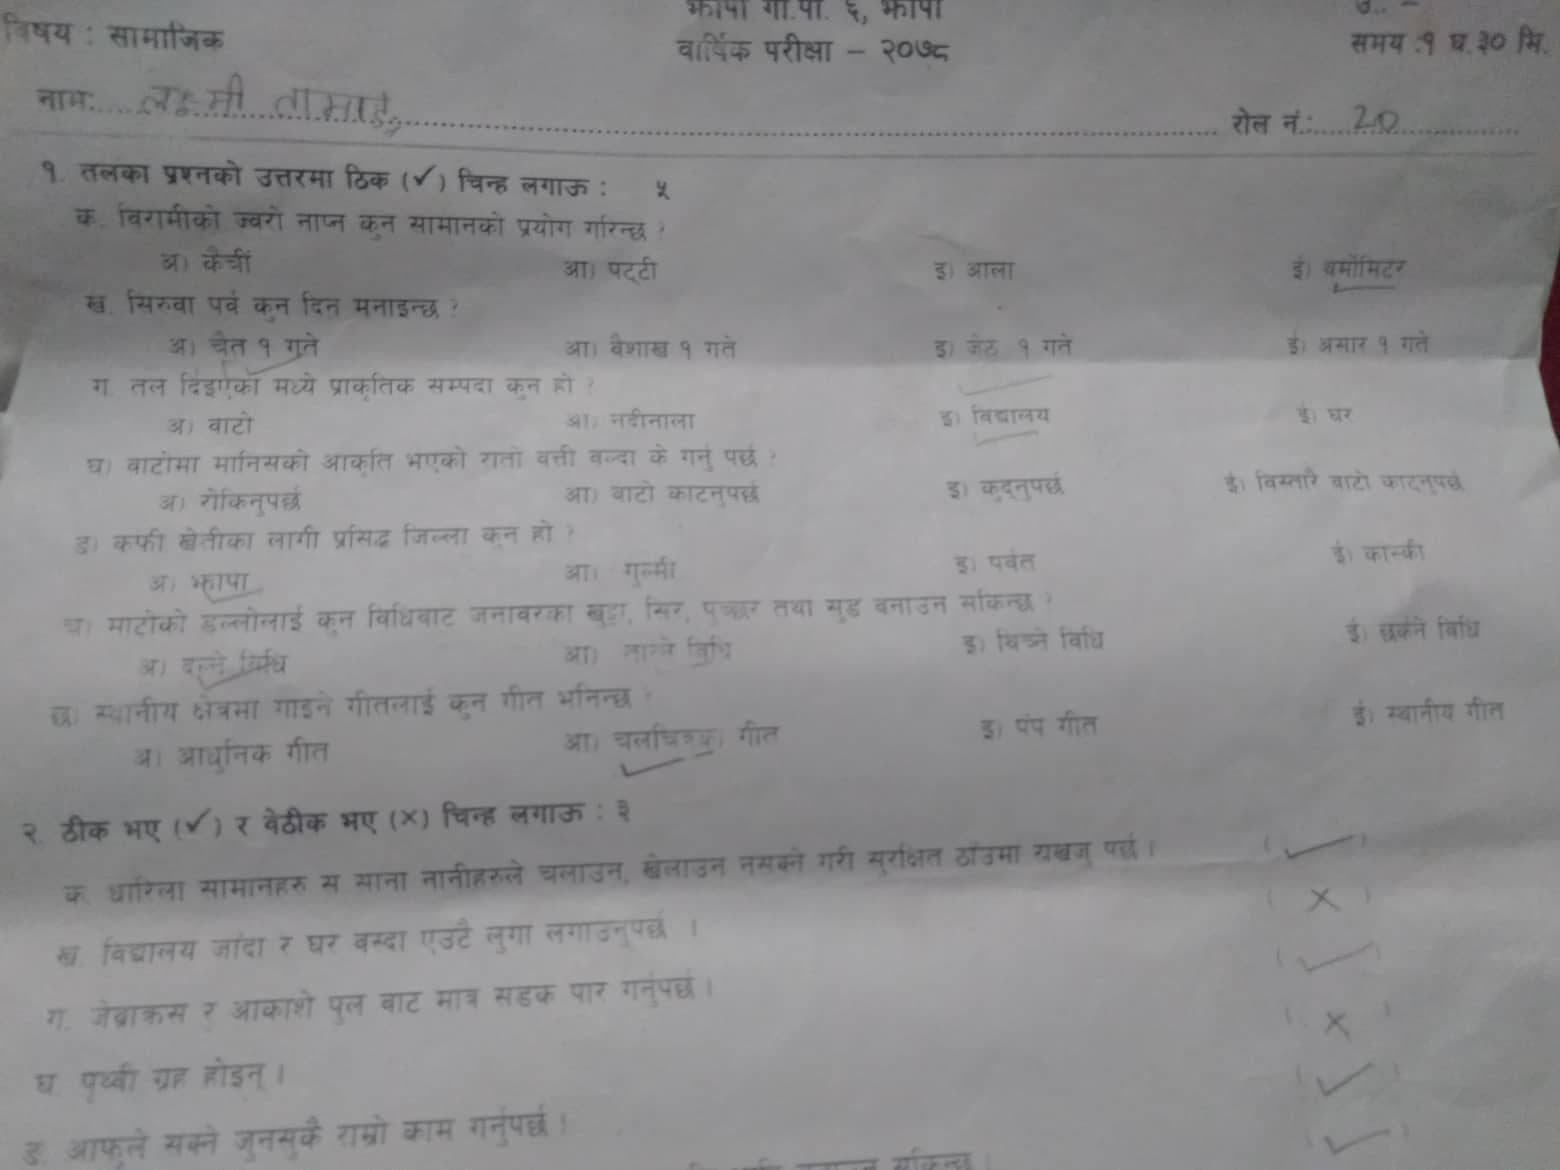 झापा गा.पा. ६, झापा
विषय : सामाजिक
वार्षिक परीक्षा – २०७८
समय :१ घ.३० मि.
नाम: लक्ष्मी तामाङ
रोल नं.: 20
१. तलका प्रश्नको उत्तरमा ठिक (✓) चिन्ह लगाऊ : ५
क. विरामीको ज्वरो नाप्न कुन सामानको प्रयोग गरिन्छ ?
अ) कैची आ) पट्टी इ) आला ई) थर्मोमिटर
ख. सिरुवा पर्व कुन दिन मनाइन्छ ?
अ) चैत १ गते आ) वैशाख १ गते इ) जेठ १ गते ई) असार १ गते
ग. तल दिइएका मध्ये प्राकृतिक सम्पदा कुन हो ?
अ) वाटो आ) नदीनाला इ) विद्यालय ई) घर
घ) वाटोमा मानिसको आकृति भएको रातो वत्ती वल्दा के गर्नु पर्छ ?
अ) रोकिनुपर्छ आ) वाटो काटनुपर्छ इ) कुद्नुपर्छ ई) विस्तारै वाटो काट्नुपर्छ
ङ) कफी खेतीका लागी प्रसिद्ध जिल्ला कुन हो ?
अ) झापा आ) गुल्मी इ) पर्वत ई) कास्की
च) माटोको डल्लोलाई कुन विधिवाट जनावरका खुट्टा, सिर, पुच्छर तथा मुड वनाउन सकिन्छ ?
अ) दल्ने विधि आ) तान्ने विधि इ) थिच्ने विधि ई) छर्कने विधि
छ) स्थानीय क्षेत्रमा गाइने गीतलाई कुन गीत भनिन्छ ?
अ) आधुनिक गीत आ) चलचित्रका गीत इ) पंप गीत ई) स्थानीय गीत
२. ठीक भए (✓) र वेठीक भए (×) चिन्ह लगाऊ : ३
क. धारिला सामानहरु स साना नानीहरुले चलाउन, खेलाउन नसक्ने गरी सुरक्षित ठाँउमा राख्नु पर्छ । (✓)
ख. विद्यालय जाँदा र घर वस्दा एउटै लुगा लगाउनुपर्छ । (×)
ग. जेब्राक्रस र आकाशे पुल वाट मात्र सडक पार गर्नुपर्छ । (✓)
घ. पृथ्वी ग्रह होइन् । (×)
ङ. आफुले सक्ने जुनसुकै राम्रो काम गर्नुपर्छ । (✓)
सकिन्छ । (✓)